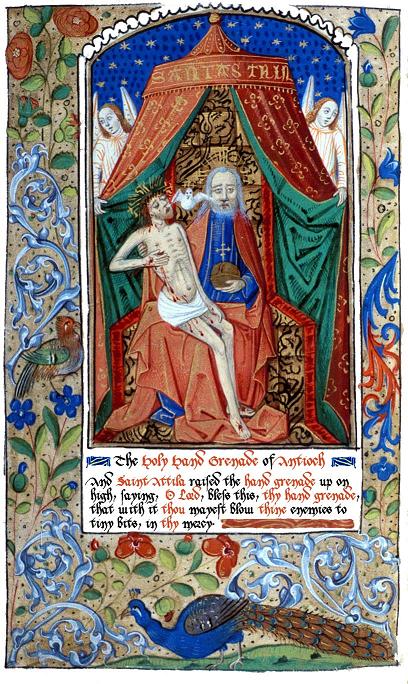 SANTAS TRIN
The Holy Hand Grenade of Antioch
And Saint Attila raised the hand grenade up on
high, saying, O Lord, bless this, thy hand grenade,
that with it thou mayest blow thine enemies to
tiny bits, in thy mercy.